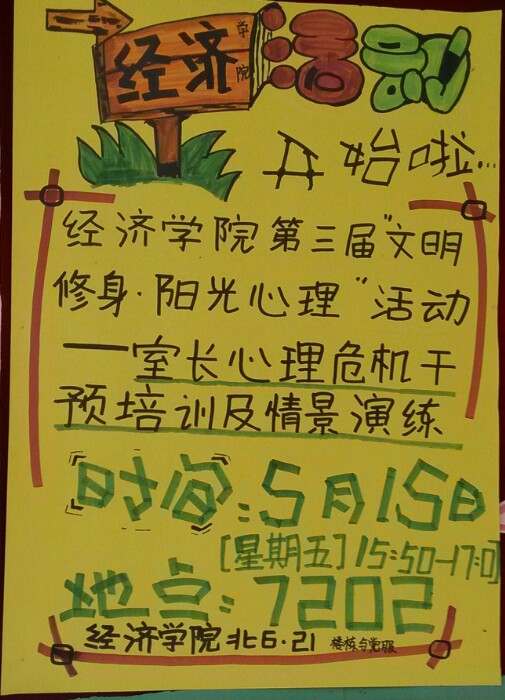 经济学院 活动
开始啦...
经济学院第三届"文明
修身·阳光心理"活动
—室长心理危机干
预培训及情景演练
时间:5月15日
[星期五]15:50-17:0
地点:7202
经济学院北6·21